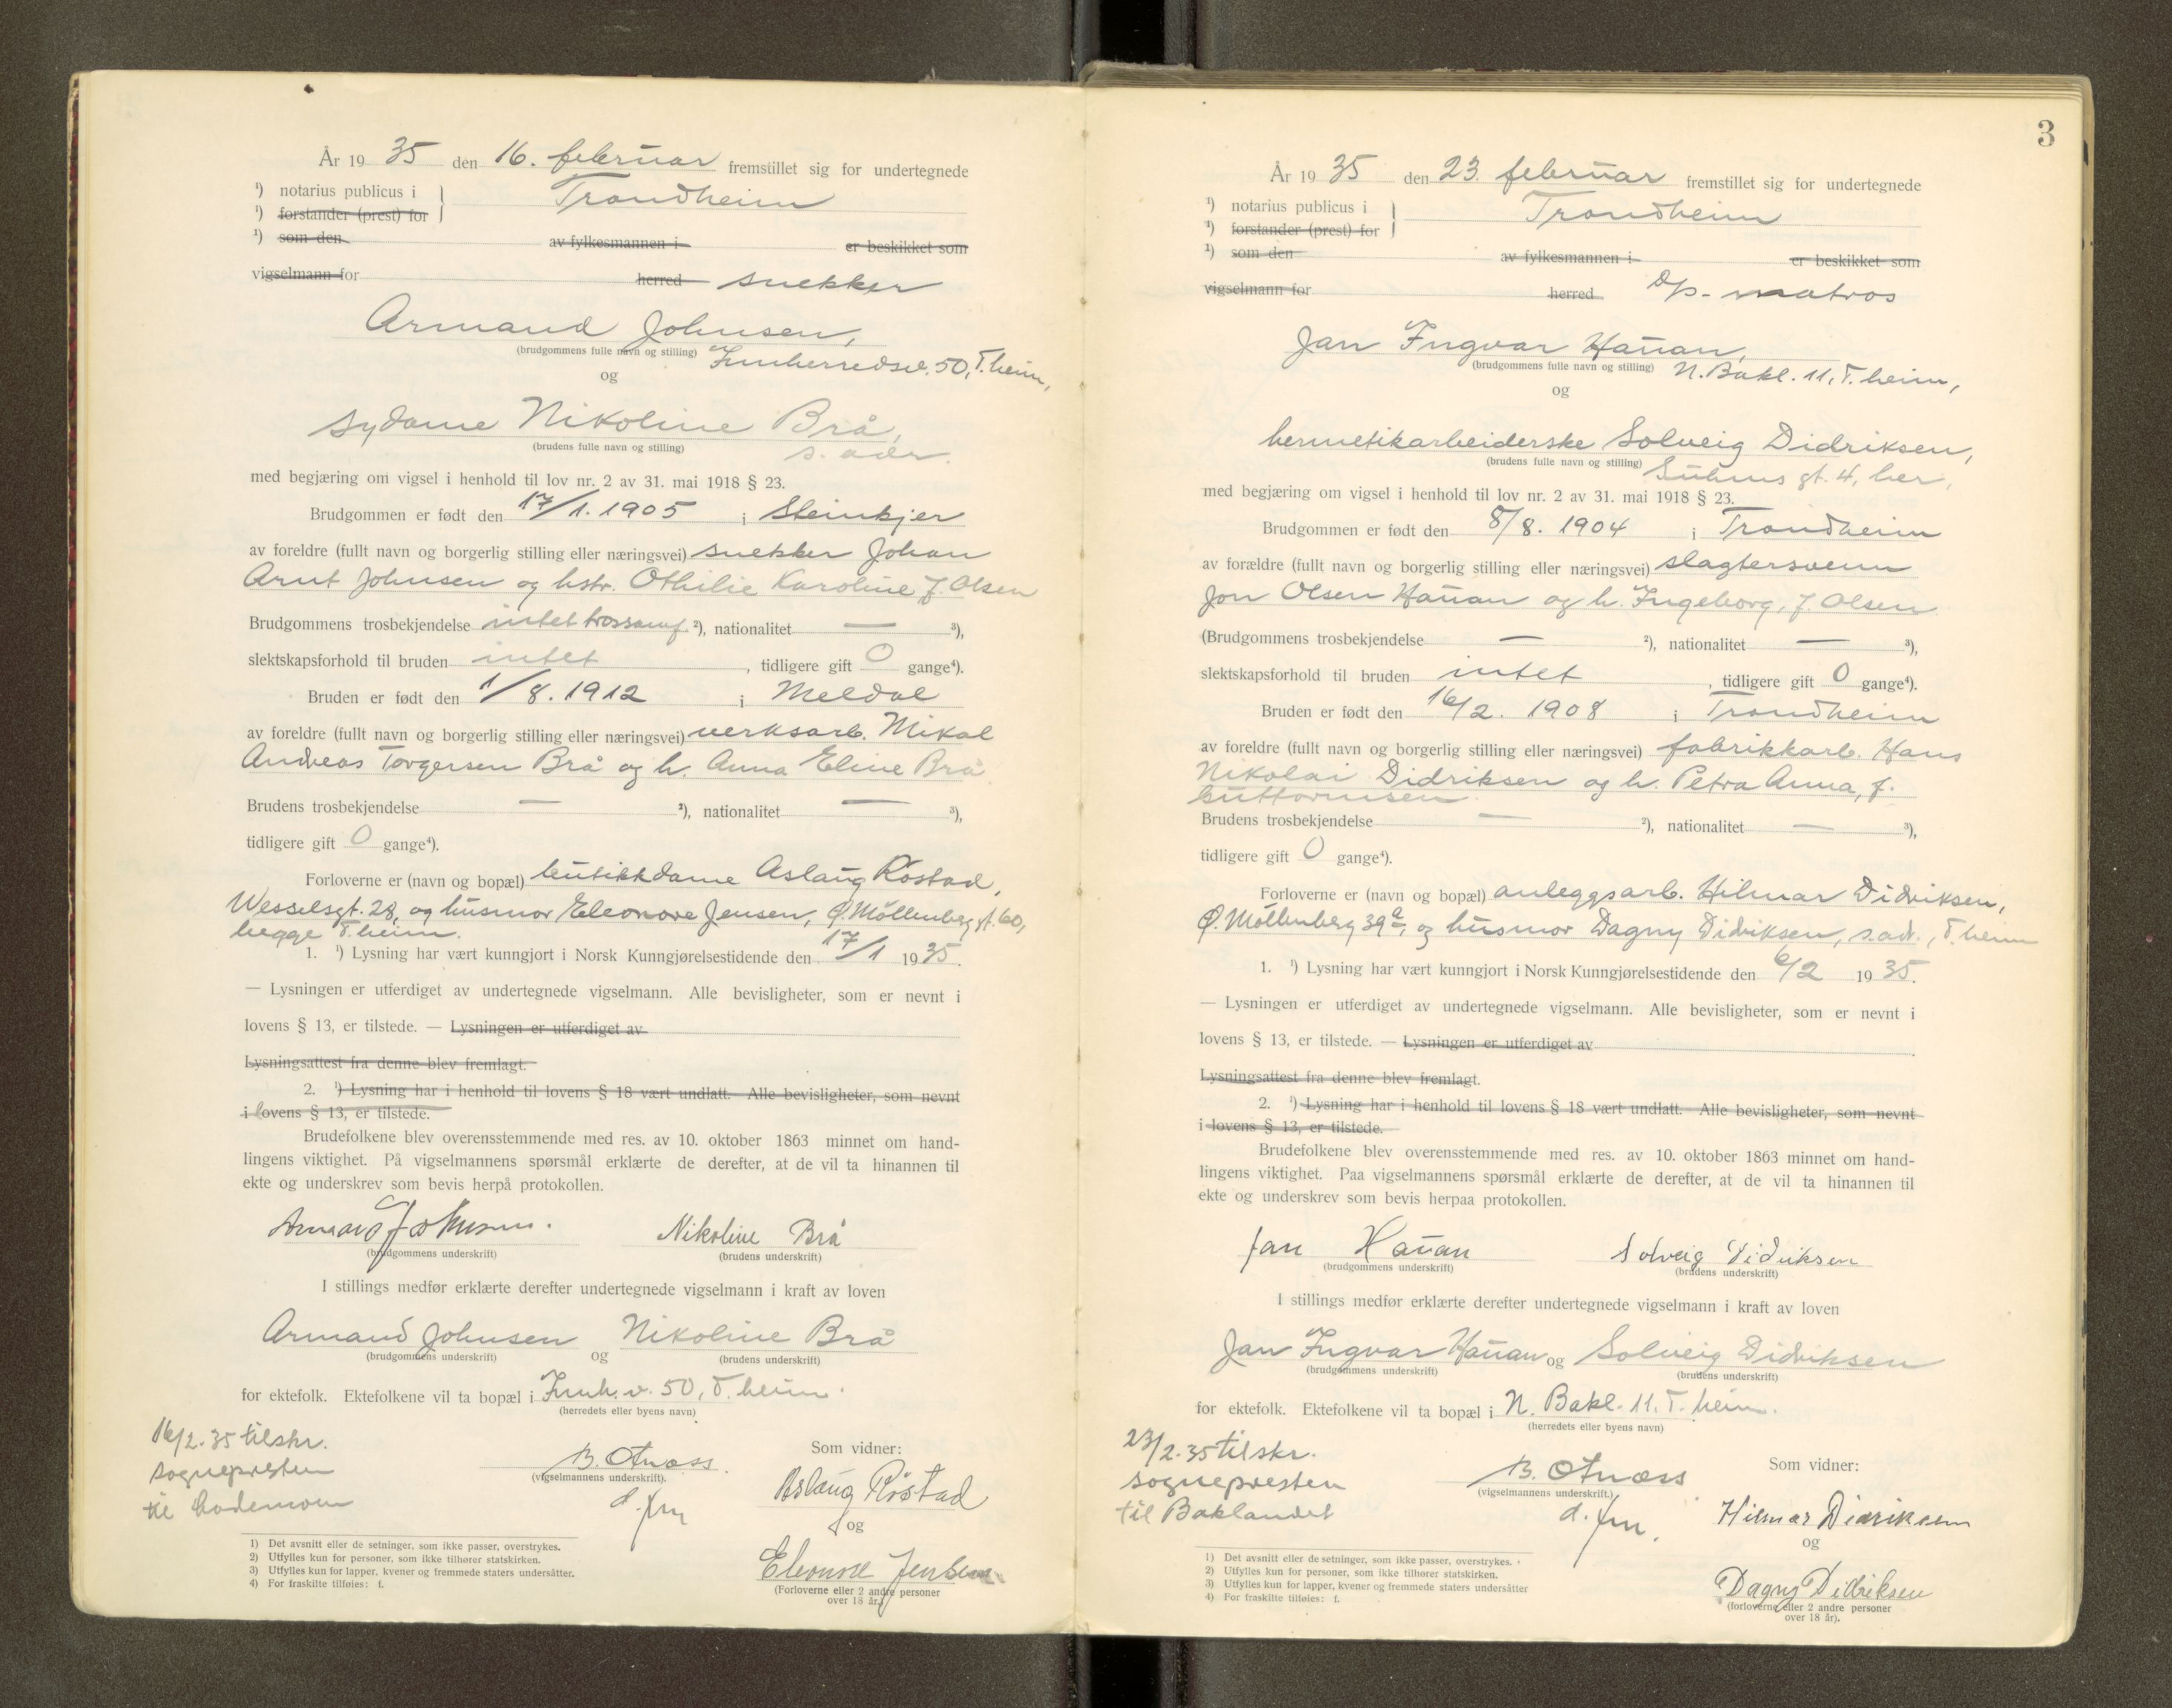 År 19 35 den 16. februar fremstillet sig for undertegnede
¹) notarius publicus i } Trondheim
¹) forstander (prest) for
¹) som den av fylkesmannen i er beskikket som
vigselmann for herred snekker
Armand Johnsen,
(brudgommens fulle navn og stilling) Innherredsv. 50, T.heim,
og
sydame Nikoline Brå,
(brudens fulle navn og stilling) s. adr.
med begjæring om vigsel i henhold til lov nr. 2 av 31. mai 1918 § 23.
Brudgommen er født den 17/1. 1905 i Steinkjer
av foreldre (fullt navn og borgerlig stilling eller næringsvei) snekker Johan
Arnt Johnsen og hstr. Othilie Karoline f. Olsen
Brudgommens trosbekjendelse intet trossamf. ²), nationalitet — ³),
slektskapsforhold til bruden intet, tidligere gift 0 gange⁴).
Bruden er født den 1/8. 1912 i Meldal
av foreldre (fullt navn og borgerlig stilling eller næringsvei) verksarb. Mikal
Andreas Torgersen Brå og h. Anna Eline Brå
Brudens trosbekjendelse — ²), nationalitet — ³),
tidligere gift 0 gange⁴).
Forloverne er (navn og bopæl) butikkdame Aslaug Røstad,
Wesselsgt. 28, og husmor Eleonore Jensen, Ø. Möllenberg gt. 60,
begge T.heim.
1. ¹) Lysning har vært kunngjort i Norsk Kunngjørelsestidende den 17/1 1935.
— Lysningen er utferdiget av undertegnede vigselmann. Alle bevisligheter, som er nevnt i
lovens § 13, er tilstede. — Lysningen er utferdiget av
Lysningsattest fra denne blev fremlagt.
2. ¹) Lysning har i henhold til lovens § 18 vært undlatt. Alle bevisligheter, som nevnt
i lovens § 13, er tilstede.
Brudefolkene blev overensstemmende med res. av 10. oktober 1863 minnet om hand-
lingens viktighet. På vigselmannens spørsmål erklærte de derefter, at de vil ta hinannen til
ekte og underskrev som bevis herpå protokollen.
Armand Johnsen. Nikoline Brå
(brudgommens underskrift) (brudens underskrift)
I stillings medfør erklærte derefter undertegnede vigselmann i kraft av loven
Armand Johnsen og Nikoline Brå
(brudgommens underskrift) (brudens underskrift)
for ektefolk. Ektefolkene vil ta bopæl i Innh. v. 50, T.heim.
(herredets eller byens navn)
16/2.35 tilskr.
sognepresten
til Lademoen
B. Otnæss
(vigselmannens underskrift).
d. fm
Som vidner:
Aslaug Röstad
og
Eleonore Jensen
(Forloverne eller 2 andre personer
over 18 år.)
1) Det avsnitt eller de setninger, som ikke passer, overstrykes.
2) Utfylles kun for personer, som ikke tilhører statskirken.
3) Utfylles kun for lapper, kvener og fremmede staters undersåtter.
4) For fraskilte tilføies: f.
3
År 19 35 den 23. februar fremstillet sig for undertegnede
¹) notarius publicus i } Trondheim
¹) forstander (prest) for
¹) som den av fylkesmannen i er beskikket som
vigselmann for herred D/s- matros
Jan Ingvar Hauan,
(brudgommens fulle navn og stilling) N. Bakl. 11, T.heim,
og
hermetikarbeiderske Solveig Didriksen,
(brudens fulle navn og stilling) Suhms gt. 4, her,
med begjæring om vigsel i henhold til lov nr. 2 av 31. mai 1918 § 23.
Brudgommen er født den 8/8. 1904 i Trondheim
av forældre (fullt navn og borgerlig stilling eller næringsvei) slagtersvenn
Jon Olsen Hauan og h. Ingeborg, f. Olsen
(Brudgommens trosbekjendelse — ²), nationalitet — ³),
slektskapsforhold til bruden intet, tidligere gift 0 gange⁴).
Bruden er født den 16/2. 1908 i Trondheim
av foreldre (fullt navn og borgerlig stilling eller næringsvei) fabrikkarb. Hans
Nikolai Didriksen og h. Petra Anna, f.
Guttormsen.
Brudens trosbekjendelse — ²), nationalitet — ³),
tidligere gift 0 gange⁴).
Forloverne er (navn og bopæl) anleggsarb. Hilmar Didriksen,
Ø. Möllenberg 39a, og husmor Dagny Didriksen, s.adr., T.heim
1. ¹) Lysning har vært kunngjort i Norsk Kunngjørelsestidende den 6/2 1935.
— Lysningen er utferdiget av undertegnede vigselmann. Alle bevisligheter, som er nevnt i
lovens § 13, er tilstede. — Lysningen er utferdiget av
Lysningsattest fra denne blev fremlagt.
2. ¹) Lysning har i henhold til lovens § 18 vært undlatt. Alle bevisligheter, som nevnt
i lovens § 13, er tilstede.
Brudefolkene blev overensstemmende med res. av 10. oktober 1863 minnet om hand-
lingens viktighet. Paa vigselmannens spørsmål erklærte de derefter, at de vil ta hinannen til
ekte og underskrev som bevis herpaa protokollen.
Jan Hauan Solveig Didriksen
(brudgommens underskrift) (brudens underskrift)
I stillings medfør erklærte derefter undertegnede vigselmann i kraft av loven
Jan Ingvar Hauan og Solveig Didriksen
(brudgommens underskrift) (brudens underskrift)
for ektefolk. Ektefolkene vil ta bopæl i N. Bakl. 11. T.heim.
(herredets eller byens navn)
23/2.35 tilskr.
sognepresten
til Baklandet
B. Otnæss
(vigselmannens underskrift.)
d. fm.
Som vidner:
Hilmar Didriksen
og
Dagny Didriksen
(forloverne eller 2 andre personer
over 18 år).
1) Det avsnitt eller de setninger, som ikke passer, overstrykes.
2) Utfylles kun for personer, som ikke tilhører statskirken.
3) Utfylles kun for lapper, kvener og fremmede staters undersåtter
4) For fraskilte tilføies: f.